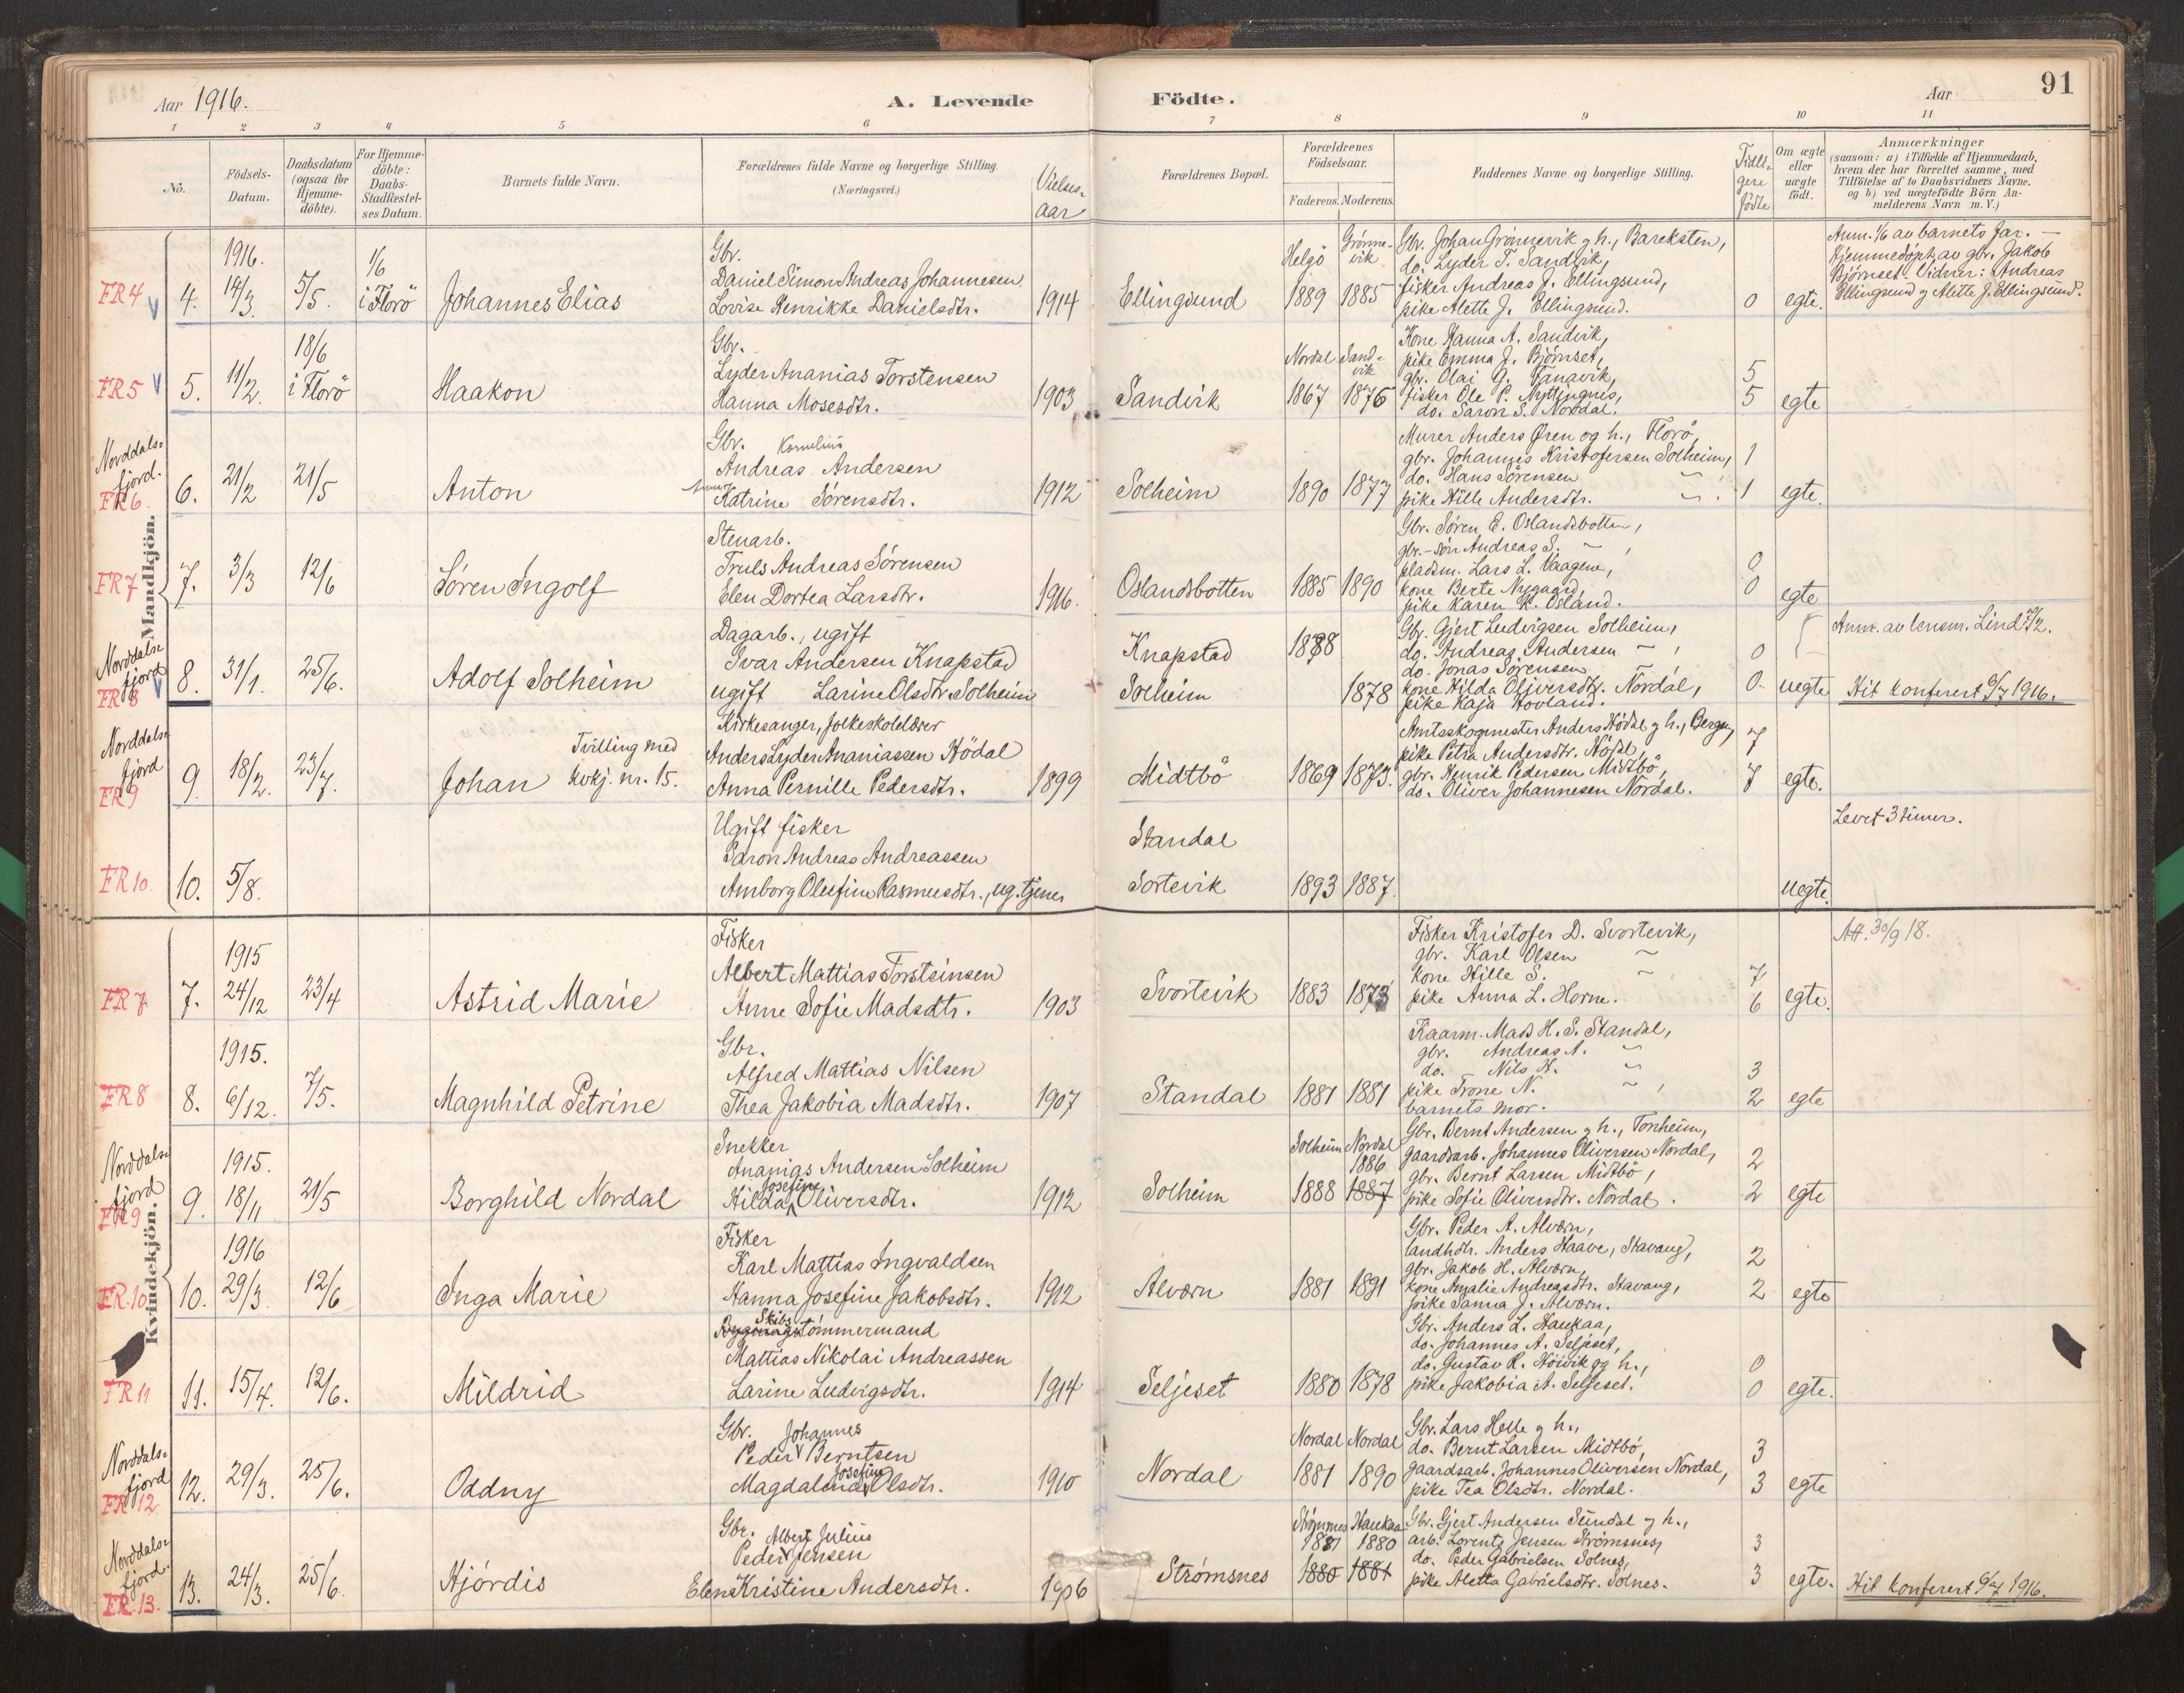 91
Aar 1916.
A. Levende Födte.
Aar
1 2 3 4 5 6 7 8 9 10 11
No.
Födsels-Datum.
Daabsdatum (ogsaa for Hjemme-döbte).
For Hjemme-döbte: Daabs-Stadfæstel-ses Datum.
Barnets fulde Navn.
Forældrenes fulde Navne og borgerlige Stilling.
(Næringsvei.)
Vielses-aar
Forældrenes Bopæl.
Forældrenes Födselsaar.
Faderens. Moderens.
Faddernes Navne og borgerlige Stilling.
Tidli-gere födte
Om ægte eller uægte født.
Anmærkninger
(saasom: a) i Tilfælde af Hjemmedaab,
hvem der har forrettet samme, med
Tilföielse af to Daabsvidners Navne.
og b) ved uægtefödte Börn An-
melderens Navn m. V.)
Mandkjön.
FR 4
4.
1916.
14/3.
5/5.
1/6
i Florö
Johannes Elias
Gbr.
Daniel Simon Andreas Johannesen
Lovise Henrikke Danielsdtr.
1914
Ellingsund
Helgö 1889
Grönne-vik 1885
Gbr. Johan Grönnevik og h., Bareksten,
do. Lyder T. Sandvik,
fisker Andreas J. Ellingsund,
pike Alette J. Ellingsund.
0
egte.
Anm. 1/6 av barnets far. —
Hjemmedöpt av gbr. Jakob
Björnset. Vidner: Andreas
Ellingsund og Alette J. Ellingsund.
FR 5
5.
11/2.
18/6
i Florö
Haakon
Gbr.
Lyder Ananias Torstensen
Hanna Mosesdtr.
1903
Sandvik
Nordal 1867
Sand-vik 1876
Kone Hanna A. Sandvik,
pike Emma J. Björnset,
gbr. Olai G. Fanavik,
fisker Ole P. Nyttingnes,
do. Saron S. Nordal.
5
5
egte
Norddals-fjord.
FR 6
6.
21/2
21/5
Anton
Gbr. Kornelius
Andreas Andersen
Katrine Sörensdtr.
1912
Solheim
1890 1877
Murer Anders Øren og h., Florö,
gbr. Johannes Kristofersen Solheim,
do. Hans Sörensen "
pike Hille Andersdtr. "
1
1
egte.
FR 7
7.
3/3
12/6
Sören Ingolf
Stenarb.
Truls Andreas Sörensen
Elen Dortea Larsdtr.
1916.
Oslandsbotten
1885 1890
Gbr. Sören E. Oslandsbotten,
gbr.-sön Andreas S. — ,
pladsm. Lars L. Vaagene,
kone Berte Nygaard,
pike Karen K. Osland.
0
0
egte
Norddals-fjord
FR 8
8.
31/1.
25/6.
Adolf Solheim
Dagarb., ugift
Ivar Andersen Knapstad
ugift Larine Olsdtr. Solheim
Knapstad
Solheim
1888
1878
Gbr. Gjert Ludvigsen Solheim,
do. Andreas Andersen — ,
do. Jonas Sörensen
kone Hilda Oliversdtr. Nordal,
pike Kaja Hovland.
0
0.
uegte
Anm. av lensm. Lind
Hit konferert 6/7 1916.
Norddals-fjord
FR 9
9.
18/2.
23/7.
Johan
Tvilling med
kvkj. nr. 15.
Kirkesanger, folkeskolelærer
Anders Lyder Ananiassen Hödal
Anna Pernille Pedersdtr.
1899
Midtbö
1869 1873.
Amtsskogmester Anders Hödal og h., Bergen,
pike Petra Andersdtr. Hödal,
gbr. Henrik Pedersen Midtbö,
do. Oliver Johannesen Nordal.
7
7
egte.
FR 10.
10.
5/8.
Ugift fisker
Saron Andreas Andreassen
Amborg Olufine Rasmusdtr., ug. tjener
Standal
Sortevik
1893 1887.
uegte.
Levet 3 timer.
Kvindekjön.
FR 7
7.
1915
24/12
23/4
Astrid Marie
Fisker
Albert Mattias Torsteinsen
Anne Sofie Madsdtr.
1903
Svortevik
1883 1873
Fisker Kristofer D. Svortevik,
gbr. Karl Olsen "
kone Hille S. "
pike Anna L. Horne.
7
6
egte.
Att. 30/9 18.
FR 8
8.
1915.
6/12.
7/5.
Magnhild Petrine
Gbr.
Alfred Mattias Nilsen
Thea Jakobia Madsdtr.
1907
Standal
1881 1881
Kaarm. Mads H. S. Standal,
gbr. Andreas A. "
do. Nils H. "
pike Trone N. " ,
barnets mor.
3
2
egte
Norddals-fjord
FR 9
9.
1915.
18/11
21/5
Borghild Nordal
Snekker
Ananias Andersen Solheim
Hilda Josefine Oliversdtr.
1912
Solheim
Solheim 1888
Nordal 1886 1887
Gbr. Bernt Andersen og h., Tonheim,
gaardsarb. Johannes Oliversen Nordal,
gbr. Bernt Larsen Midtbö,
pike Sofie Oliversdtr. Nordal.
2
2
egte
FR. 10
10.
1916
29/3.
12/6
Inga Marie
Fisker
Karl Mattias Ingvaldsen
Hanna Josefine Jakobsdtr.
1912
Alværn
1881 1891
Gbr. Peder A. Alværn,
landhdlr. Anders Haave, Stavang,
gbr. Jakob H. Alværn,
kone Amalie Andreasdtr. Stavang,
pike Sanna J. Alværn.
2
2
egte
FR 11
11.
15/4.
12/6.
Mildrid
Skibs
Bygningstömmermand
Mattias Nikolai Andreassen
Larine Ludvigsdtr.
1914
Seljeset
1880 1878
Gbr. Anders L. Haukaa,
do. Johannes A. Seljeset,
do. Gustav R. Höivik og h.,
pike Jakobia A. Seljeset.
0
0
egte.
Norddals-fjord
FR 12
12.
29/3.
25/6.
Oddny
Gbr. Johannes
Peder Berntsen
Magdalena Josefine Olsdtr.
1910
Nordal
Nordal 1881
Nordal 1890
Gbr. Lars Helle og h.,
do. Bernt Larsen Midtbö,
gaardsarb. Johannes Oliversen Nordal,
pike Tea Olsdtr. Nordal.
3
3
egte
Norddals-fjord.
FR. 13.
13.
24/3.
25/6.
Hjördis
Gbr. Albert Julius
Peder Jensen
Elen Kristine Andersdtr.
1906
Strømsnes
Strömsnes 1881 1880
Haukaa 1880 1881
Gbr. Gjert Andersen Sundal og h.,
arb. Lorentz Jensen Strømsnes,
do. Peder Gabrielsen Solnes,
pike Aletta Gabrielsdtr. Solnes.
3
3
egte.
Hit konferert 6/7 1916.